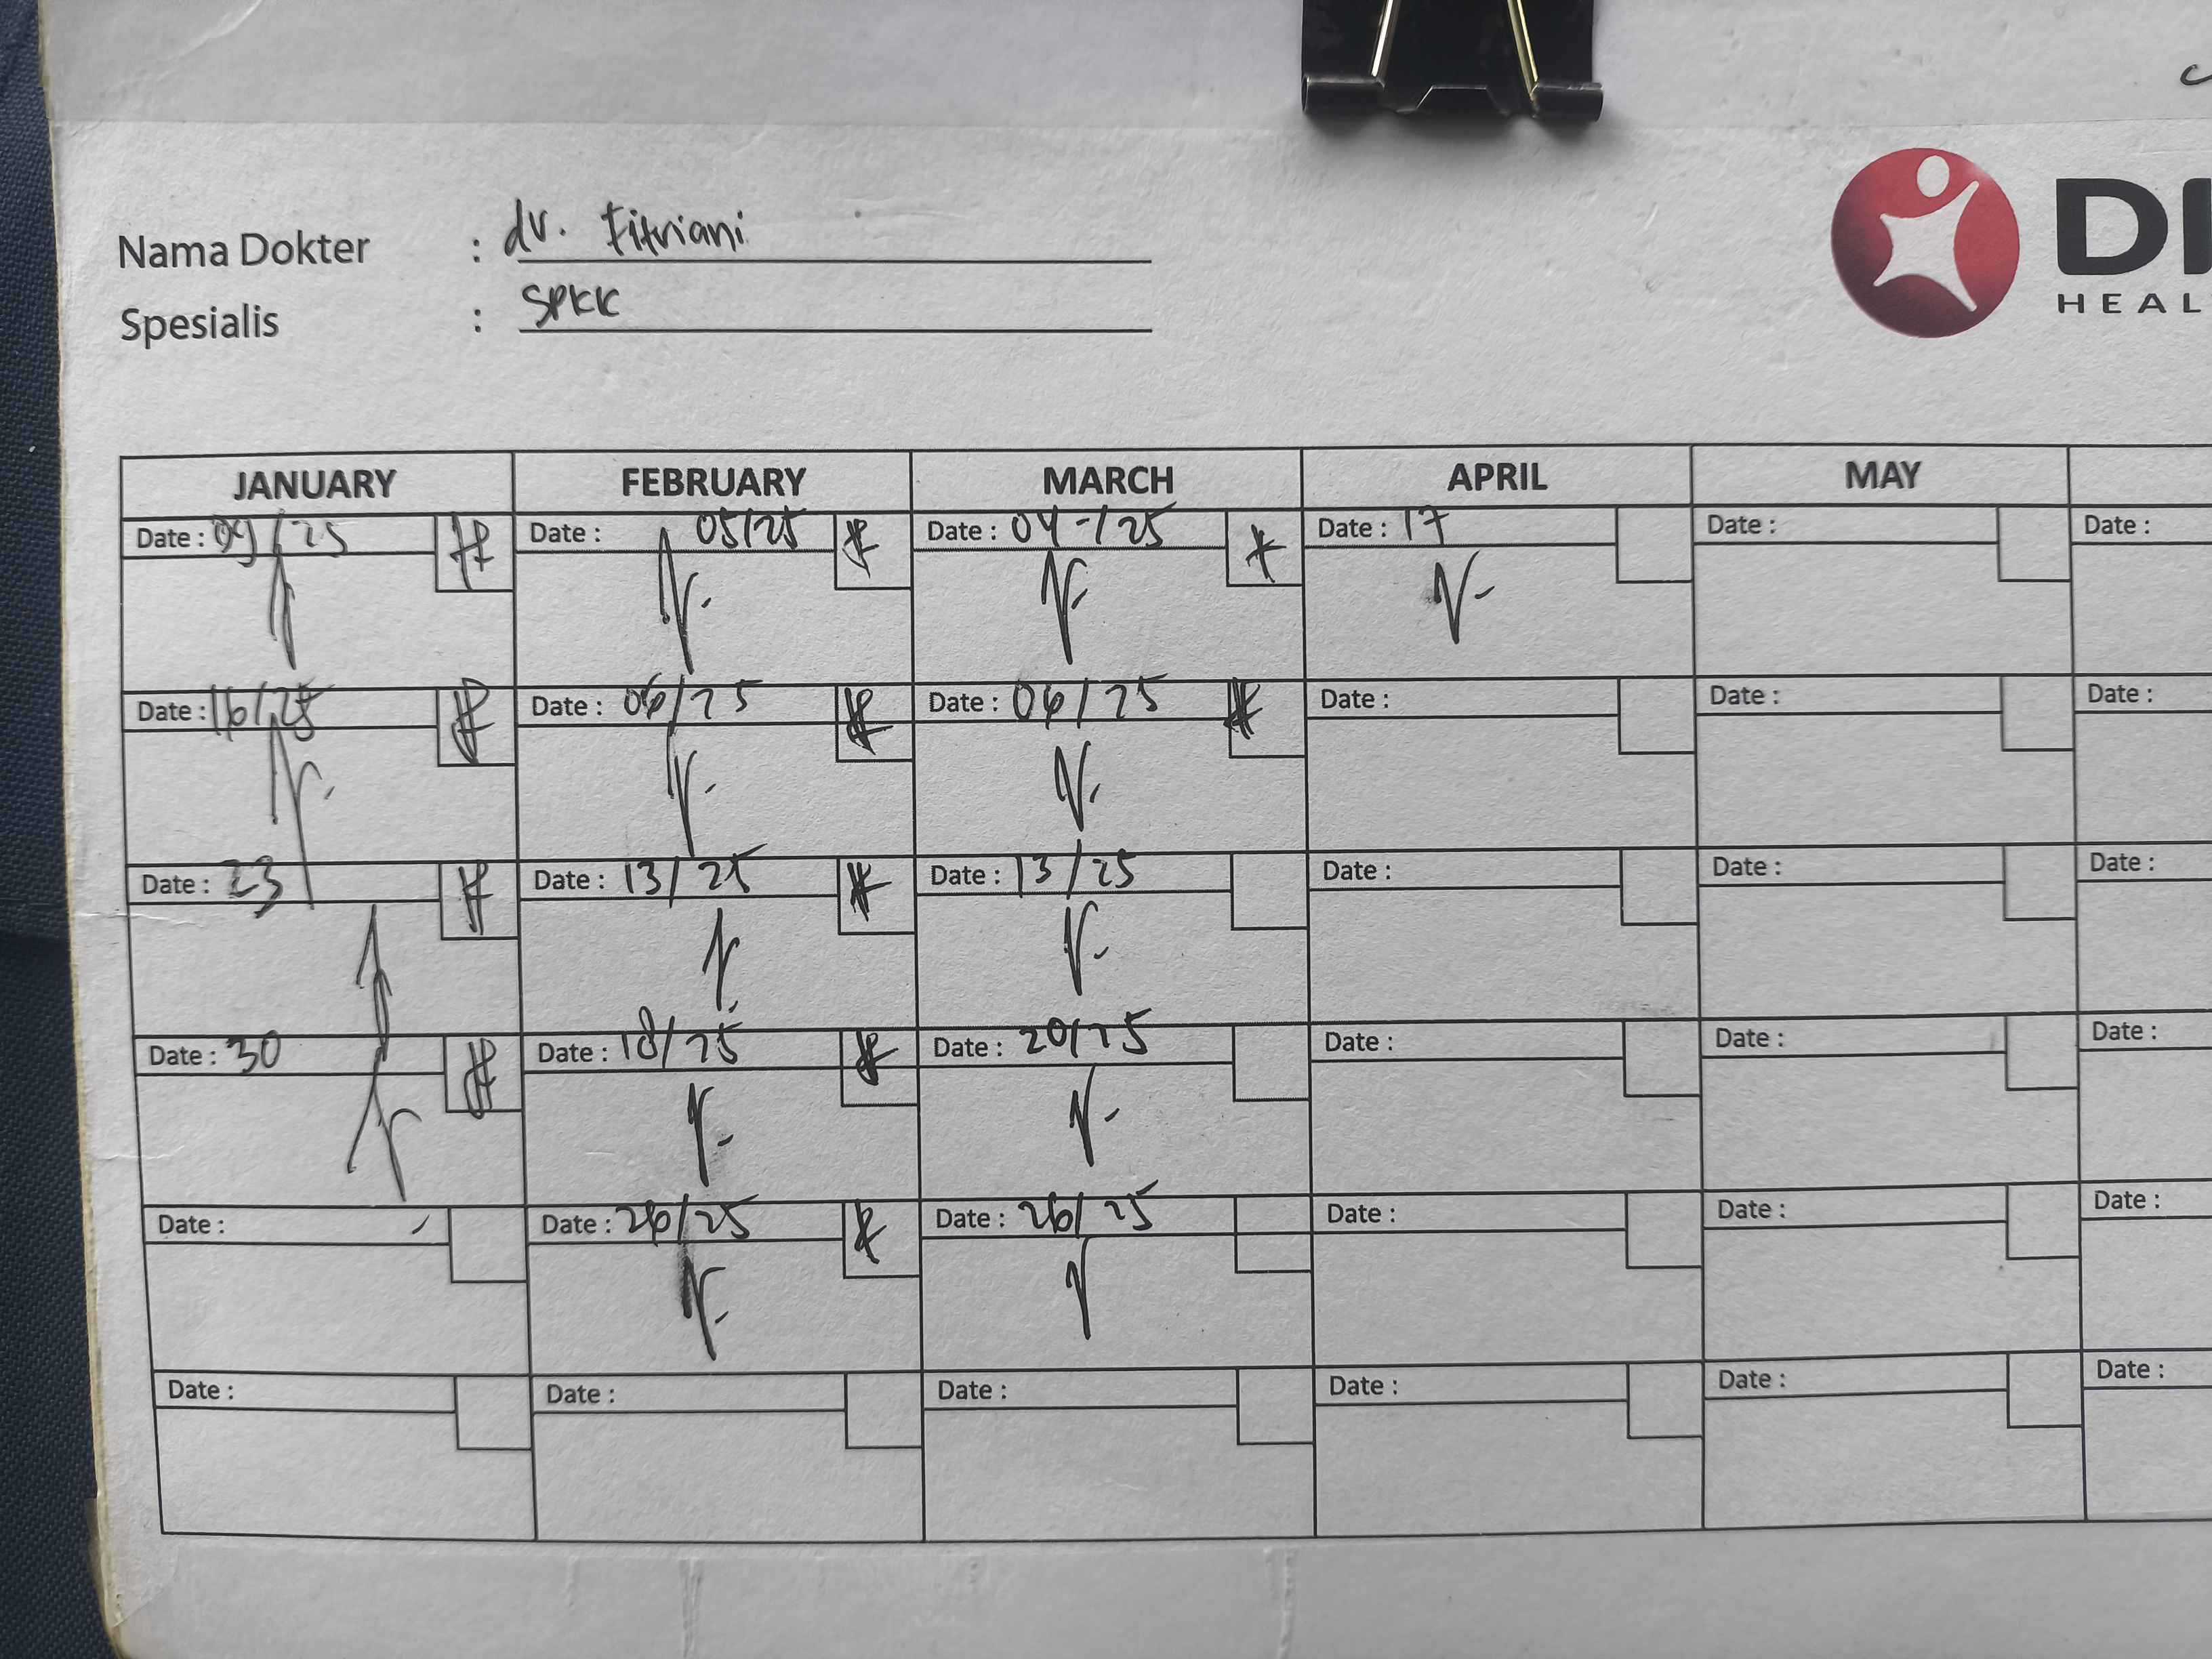 Nama Dokter : dr. Fitriani
Spesialis : SPKK
DI
HEAL
JANUARY FEBRUARY MARCH APRIL MAY
Date : 09/25 Date : 05/25 Date : 04-/25 Date : 17 Date : Date :
Date : 16/25 Date : 06/25 Date : 06/25 Date : Date : Date :
Date : 23 Date : 13/25 Date : 13/25 Date : Date : Date :
Date : 30 Date : 18/25 Date : 20/25 Date : Date : Date :
Date : Date : 26/25 Date : 26/25 Date : Date : Date :
Date : Date : Date : Date : Date : Date :